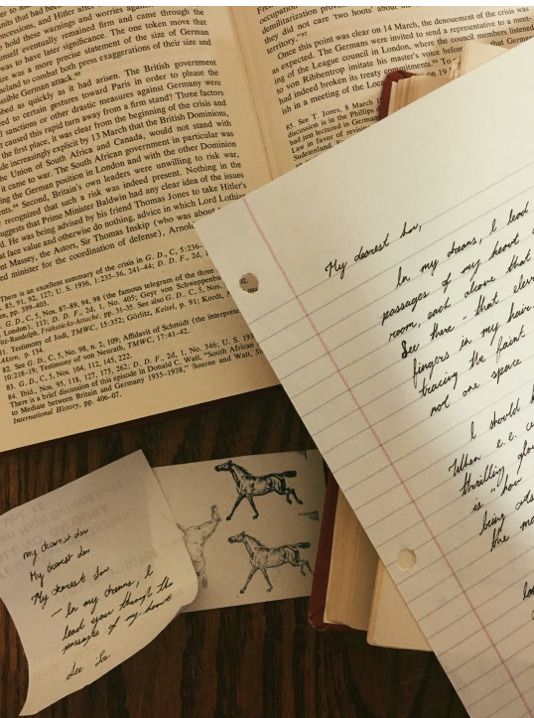 nits that had been
concessions, and Hitler after
hold these warnings and worries against
itself eventually remained firm and came through the
s to have later significance. The one token move that
was a more precise statement of the size of German
neland to combat both press exaggerations of their size and
ssible German attack.
bed as quickly as it had arisen. The British government
ed to certain gestures toward Paris in order to please the
sanctions or other drastic measures against Germany were
t caused this rapid turn away from a firm stand? Three factors
the first place, it was clear from the beginning of the crisis and
de increasingly explicit by 13 March that the British Dominions,
the Union of South Africa and Canada, would not stand with
it came to war. The South African government in particular was
ng the German position in London and with the other Dominion
Second, Britain's own leaders were unwilling to risk war,
recognized that such a risk was indeed present. Nothing in the
uggests that Prime Minister Baldwin had any clear idea of the issues
d. He was being advised by his friend Thomas Jones to take Hitler's
at face value and otherwise do nothing, advice in which Lord Lothian
nt Massey, the Astors, Sir Thomas Inskip (who was about
ed minister for the coordination of defense), Arnold
There is an excellent summary of the crisis in G. D., C, 5:236-
85, 91, 92, 127; U.S. 1936, 1:235-36, 241-44; D. D. F., 2d, 1
pp. 399-403.
G. D., C, 5, Nos. 87-89, 94, 98 (the famous telegram of the three
London), 113; D. D. F., 2d, 1, No. 405; Geyr von Schweppenb
itz-Randolph, Frühstücks-Attaché, pp. 31-35. See also G. D., C, 5, Nos.
81. Testimony of Jodl, TMWC, 15:352; Görlitz, Keitel, p. 91; Kordt,
Akten, p. 134.
82. See G. D., C, 5, No. 98, n. 2, 109; Affidavit of Schmidt (the interprete
10:218-19; Testimony of von Neurath, TMWC, 17:41-42.
83. G. D., C, 5, Nos. 104, 112, 145, 222.
84. Ibid., Nos. 95, 118, 127, 175, 262; D. D. F., 2d, 1, No. 346; U.S. 193
There is a brief discussion of this episode in Donald C. Watt, "South African
to Mediate between Britain and Germany 1935-1938," Bourne and Watt, St
International History, pp. 406-07.
occupation
demilitarization provi
they did not care 'two hoots' about
territory."
Once this point was clear on 14 March, the denouement of the crisis was
as expected. The Germans were invited to send a representative to a meet-
ing of the League council in London, where the council members listened
to von Ribbentrop imitate his master's voice before that Ger
had indeed broken its treaty commitments. To
ish in a meeting of the Loca on 19
85. See T. Jones, 8 March
discussion is in the Phillips
had just lectured in German
Law in favor of
Sudetenland
My dearest Lou,
In my dreams, I lead
passages of my heart
room, each alcove that
See there - that
fingers in my hair
tracing the faint
not one space
I should
When e.e. cu
thrilling glo
is "how
being
the mo
my dearest Lou
My dearest Lou
My dearest Lou
- In my dreams, I
lead you through the
passages of my heart
See